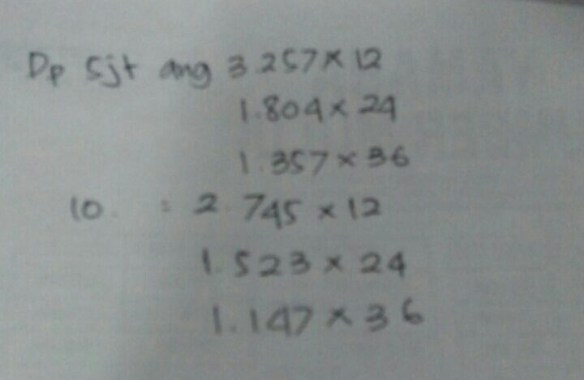 Dp 5jt ang 3.257 x 12
1.804 x 24
1.357 x 36
10. : 2.745 x 12
1.523 x 24
1.147 x 36